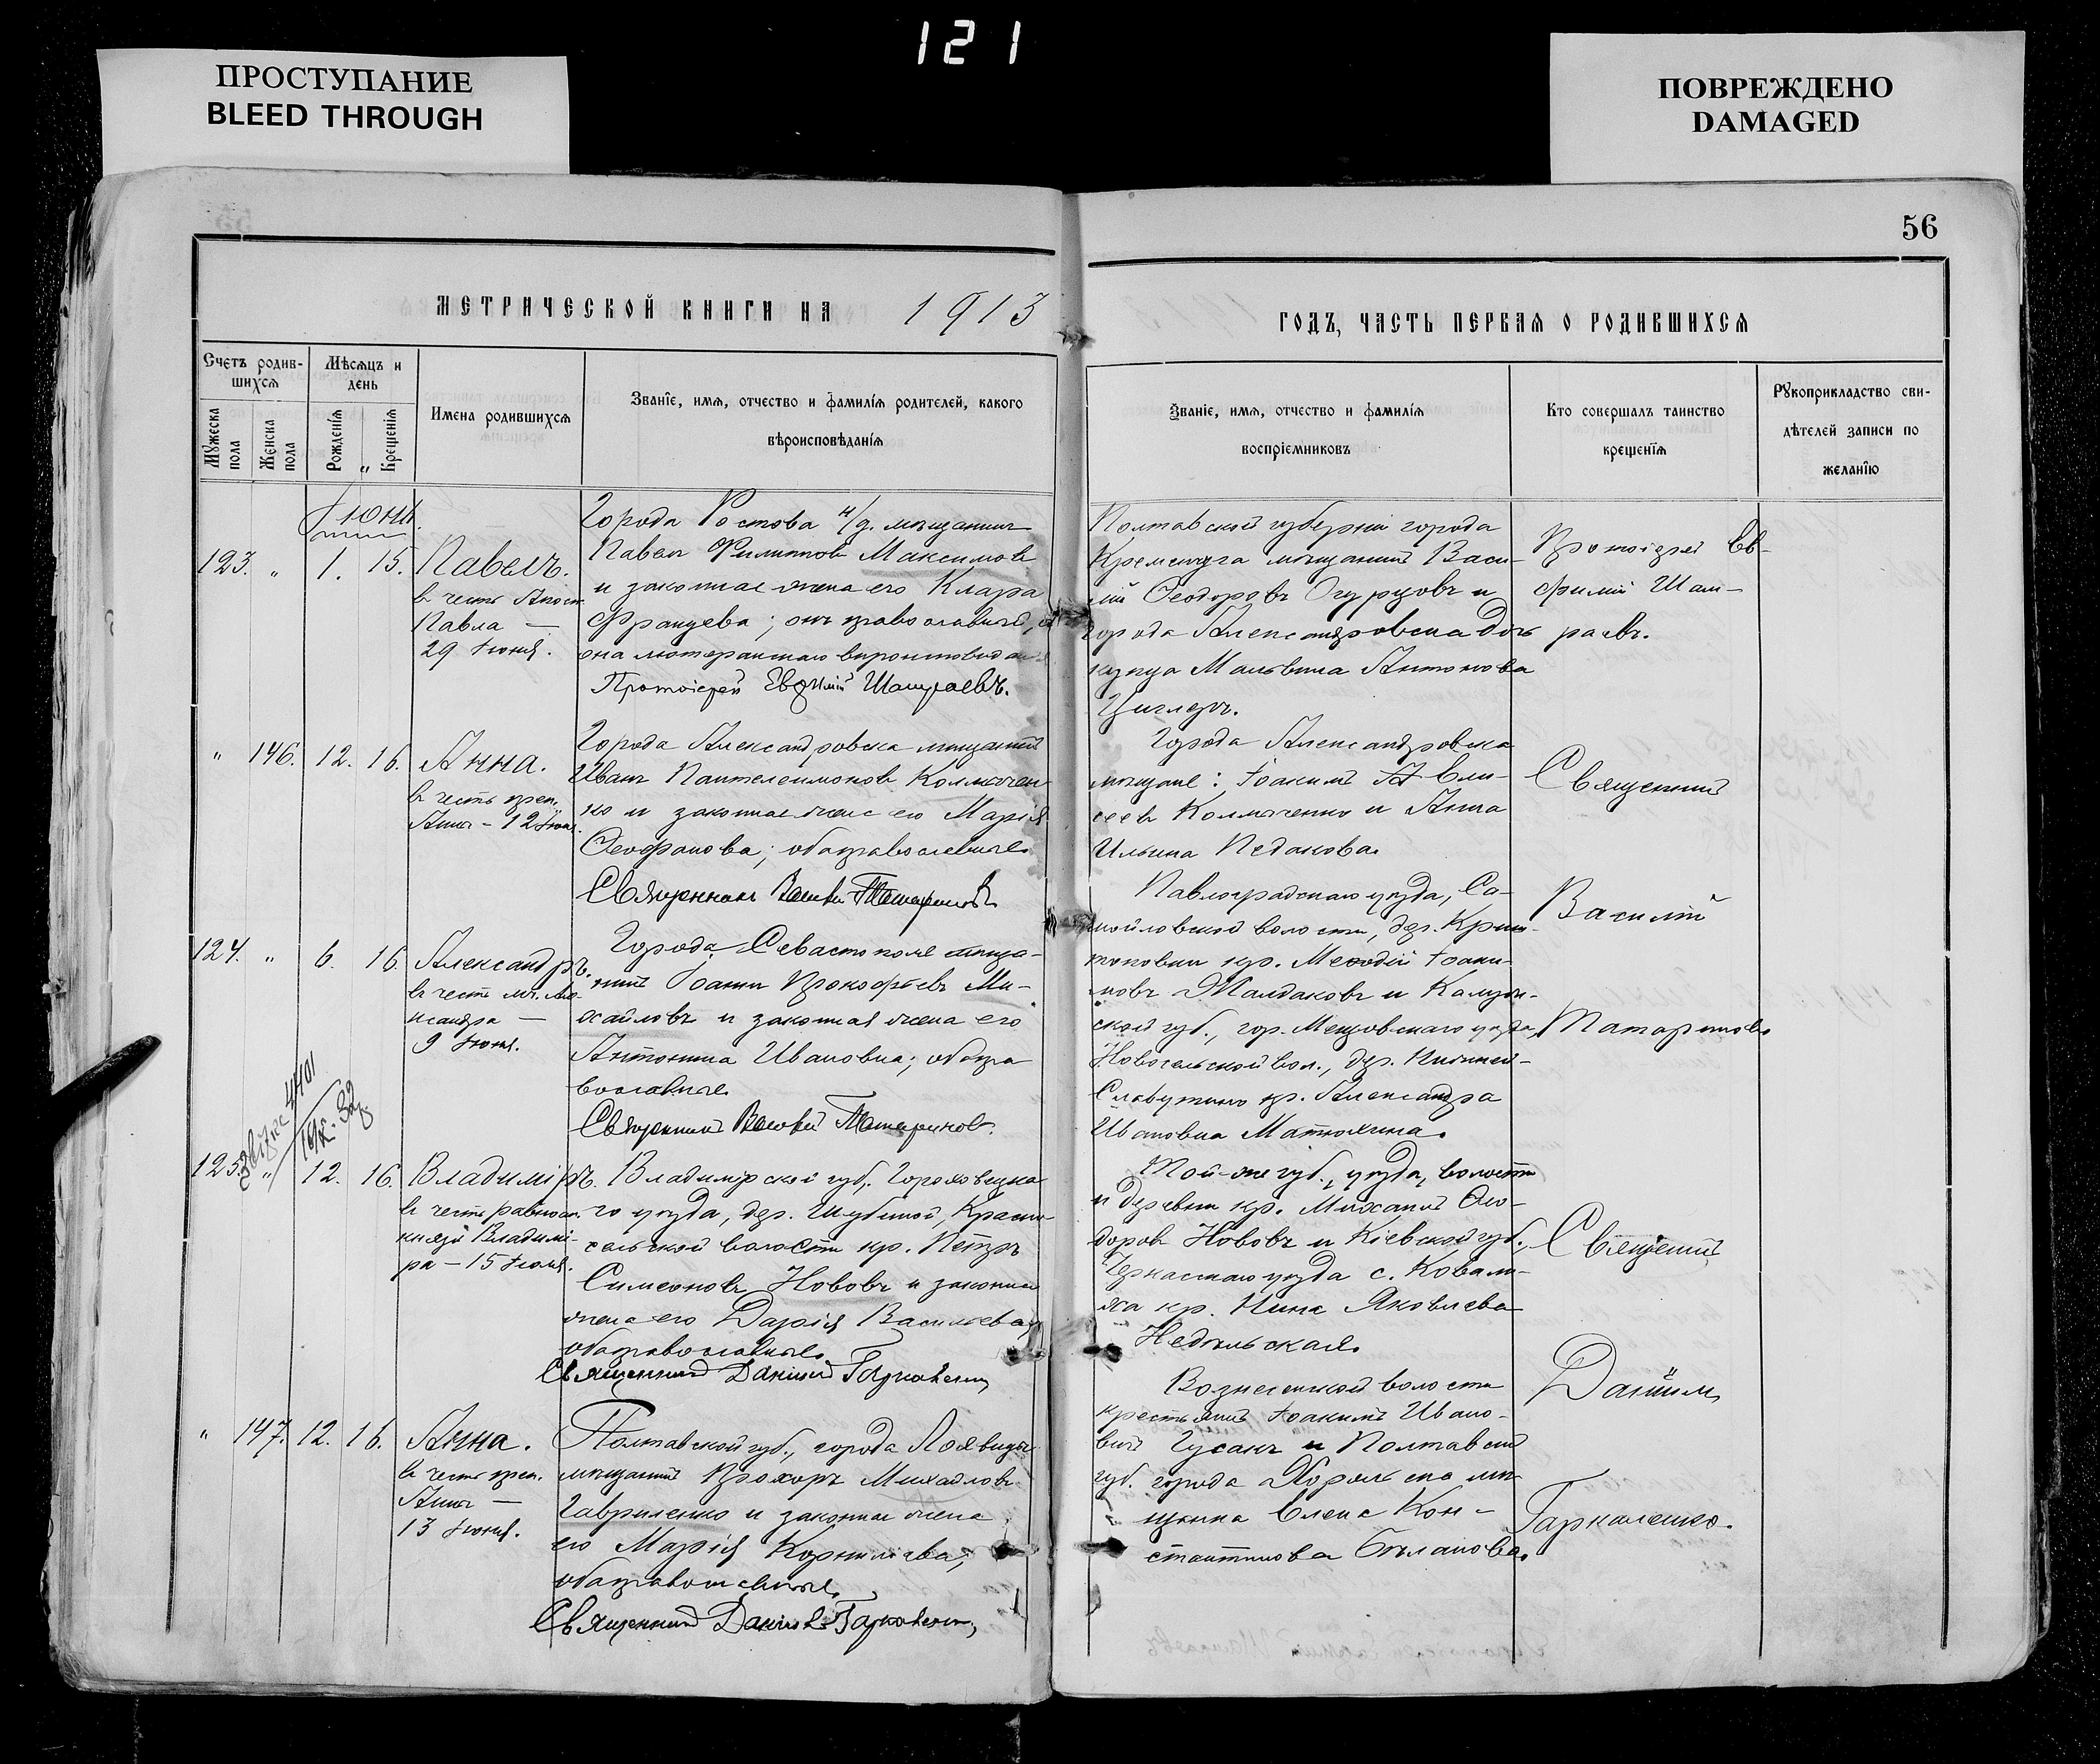 121
ПРОСТУПАНИЕ
BLEED THROUGH
ПОВРЕЖДЕНО
DAMAGED
56
МЕТРИЧЕСКОЙ КНИГИ НА 1913
ГОДЪ, ЧАСТЬ ПЕРВАЯ О РОДИВШИХСЯ
Счетъ родив-
шихся
Мѣсяцъ и
день
Мужеска
пола
Женска
пола
Рожденія
Крещенія
Имена родившихся
Званіе, имя, отчество и фамилія родителей, какого
вѣроисповѣданія
Званіе, имя, отчество и фамилія
воспріемниковъ
Кто совершалъ таинство
крещенія
Рукоприкладство сви-
дѣтелей записи по
желанію
Іюнь.
123. " 1. 15. Павелъ.
въ честь Апост.
Павла —
29 Іюня.
Города Ростова н/д. мѣщанинъ
Павелъ Филипповъ Максимовъ
и законная жена его Клара
Францева; онъ православный,
она лютеранскаго
Протоіерей Евфимій Шамраевъ.
Полтавской губерніи города
Кременчуга мѣщанинъ Васи-
лій Ѳеодоровъ Огурцовъ и
города Александровска дочь
купца Мальвина Антонова
Циглеръ.
Протоіерей Ев-
фимій Шам-
раевъ.
" 146. 12. 16. Анна.
въ честь преп.
Анны - 12 Іюня.
Города Александровска мѣщанинъ
Иванъ Пантелеимоновъ Колмачен-
ко и законная жена его Марія
Ѳеофанова; оба православные.
Священникъ Василій Татариновъ
Города Александровска
мѣщане: Іоакимъ Ели-
сеевъ Колмаченко и Анна
Ильина Педакова.
Священникъ
Василій
Татариновъ
124. " 6. 16. Александръ.
въ честь мч. Але-
ксандра —
9 Іюня.
Города Севастополя мѣща-
нинъ Іоаннъ Прокофьевъ Ми-
хайловъ и законная жена его
Антонина Ивановна; оба пра
вославные.
Священникъ Василій Татариновъ.
Павлоградскаго уѣзда, Са-
мойловской волости, дер.
кр. Меѳодій Іоаки-
мовъ Жалдаковъ и Калуж-
ской губ., гор. Мещовскаго уѣзда,
Новосельской вол., дер.
кр. Александра
Ивановна Матюхина.
4401
125. " 12. 16. Владиміръ.
въ честь равноап.
князя Владимі-
ра — 15 Іюля.
Владимірской губ., Гороховецка
го уѣзда, дер. Шубиной, Красно-
сельской волости кр. Петръ
Симеоновъ Нововъ и законная
жена его Дарія Васильева,
оба православные.
Священникъ Даніилъ Гаркаленко
Той-же губ., уѣзда, волости
и деревни кр. Михаилъ Ѳео-
доровъ Нововъ и Кіевской губ.,
Черкасскаго уѣзда с. Ковали-
яка кр. Нина Яковлева
Недѣльская.
Священникъ
Даніилъ
Гаркаленко.
" 147. 12. 16. Анна.
въ честь преп.
Анны —
13 Іюня.
Полтавской губ., города
мѣщанинъ Прохоръ Михайловъ
Гавриленко и законная жена
его Марія Корниліева;
оба православные.
Священникъ Даніилъ Гаркаленко,
Вознесенской волости
крестьянинъ Іоакимъ Ивано-
вичъ Гусакъ и Полтавской
губ. города Хороль ска мѣ-
щанка Елена Кон-
стантинова Бѣланова.